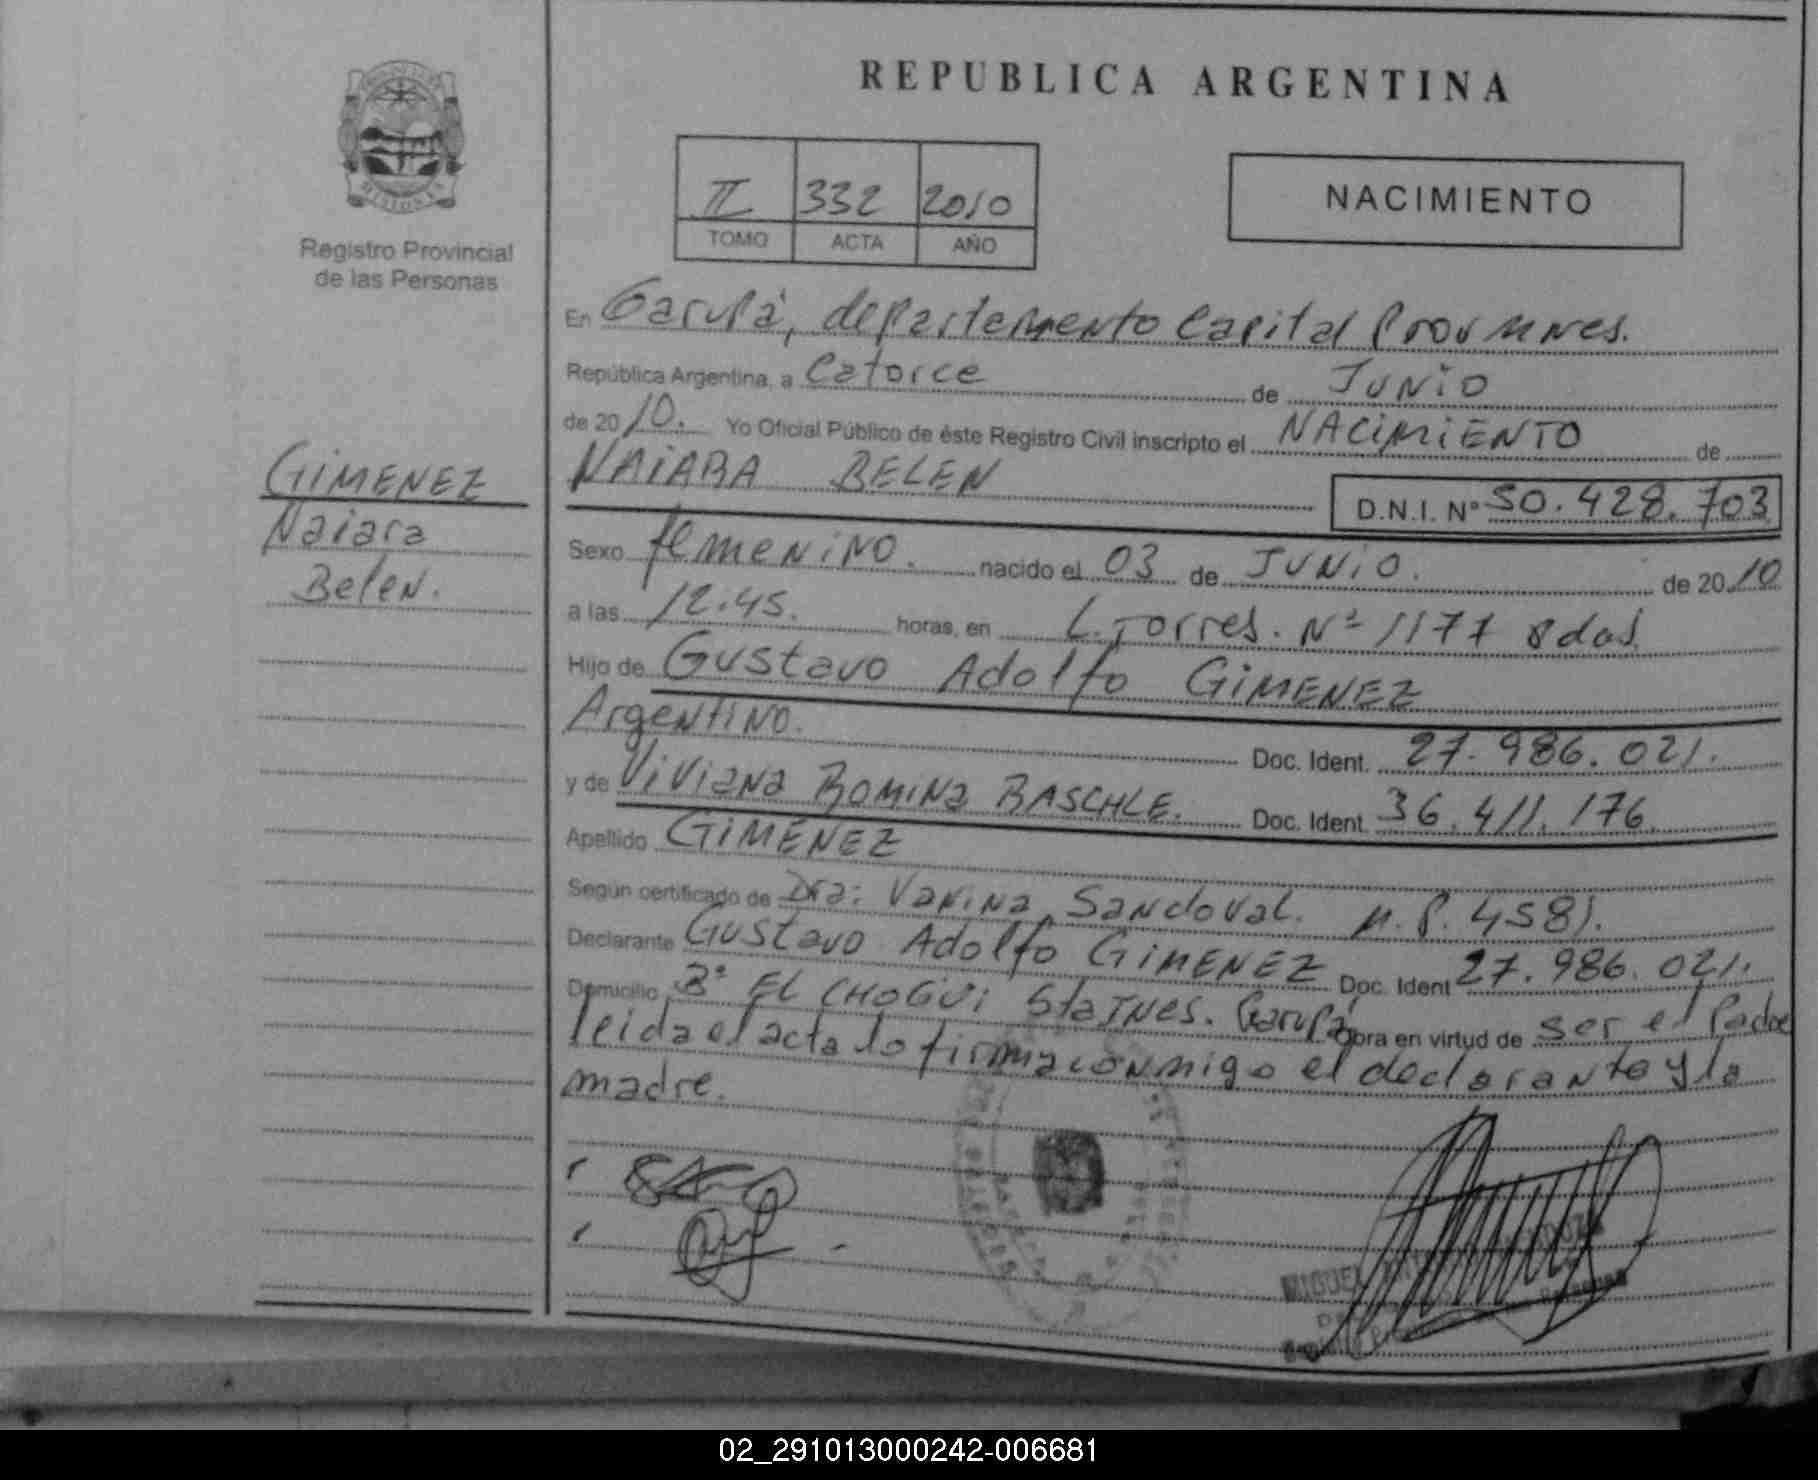 REPUBLICA ARGENTINA
MISIONES
Registro Provincial
de las Personas
II 332 2010
TOMO ACTA AÑO
NACIMIENTO
En Garupá, departamento Capital Prov Mnes.
República Argentina, a Catorce de JUNIO
de 2010. Yo Oficial Público de éste Registro Civil inscripto el NACIMIENTO de
NAIARA BELEN D.N.I. Nº 50.428.703
GIMENEZ
Naiara
Belen.
Sexo femenino. nacido el 03 de JUNIO. de 2010
a las 12:45. horas, en L. Torres. Nº 1177
Hijo de Gustavo Adolfo GIMENEZ
Argentino. Doc. Ident. 27.986.021.
y de Viviana ROMINA BASCHLE. Doc. Ident. 36.411.176.
Apellido GIMENEZ
Según certificado de Dra: Vanina Sandoval. M.P. 4581.
Declarante Gustavo Adolfo GIMENEZ Doc. Ident 27.986.021.
Domicilio Bº EL CHOGUI Sta Ines. Garupá Obra en virtud de ser el Padre
leida el acta lo firma conmigo el declarante y la
madre.
MIGUEL
02_291013000242-006681